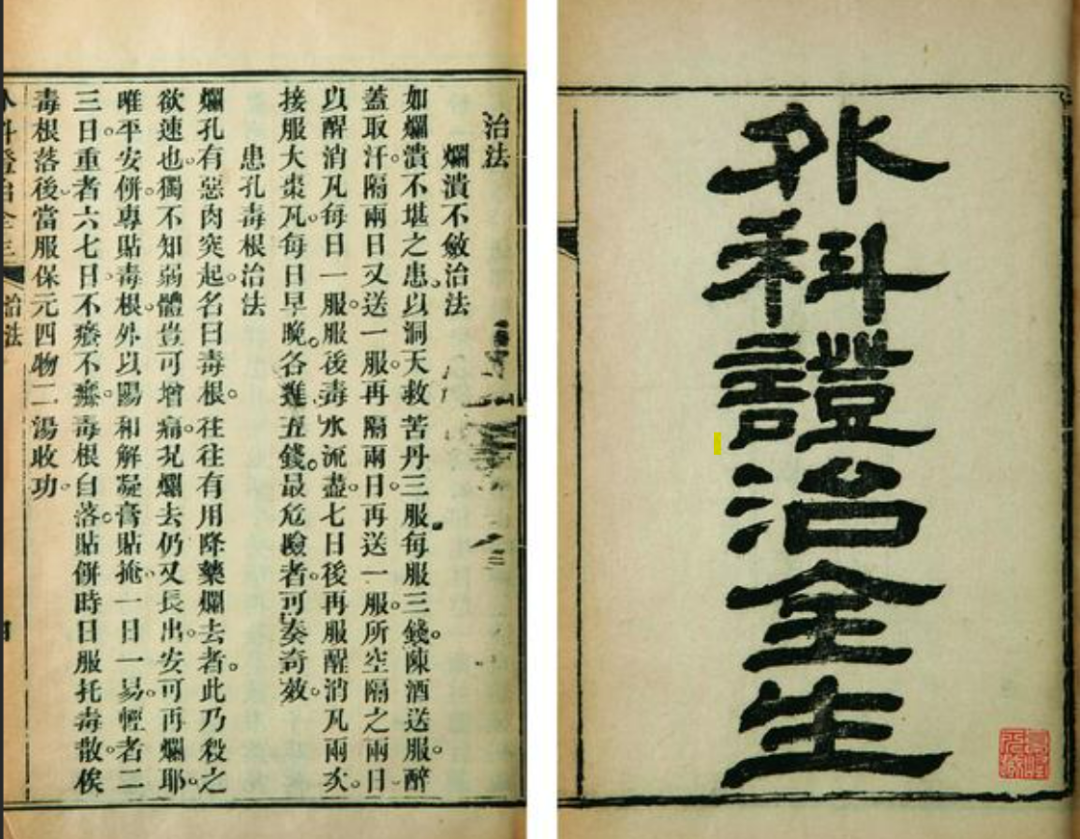 外科證治全生
治法
爛潰不斂治法
如爛潰不堪之患。以洞天救苦丹三服每服三錢。陳酒送服。醉
蓋取汗。隔兩日又送一服。再隔兩日。再送一服。所空隔之兩日
以醒消凡每日一服。服後毒水流盡。七日後再服醒消凡兩次。
接服大棗凡。每日早晚。各進五錢。最危險者。可奏奇效。
患孔毒根治法
爛孔有惡肉突起。名曰毒根。往往有用降藥爛去者。此乃殺之
欲速也。獨不知弱體豈可增痛。况爛去仍又長出。安可再爛耶。
唯平安倂。專貼毒根。外以陽和解凝膏貼掩。一日一易。輕者二
三日。重者六七日。不癢不痛。毒根自落。貼倂時日服托毒散。俟
毒根落後。當服保元四物二湯收功。
治法